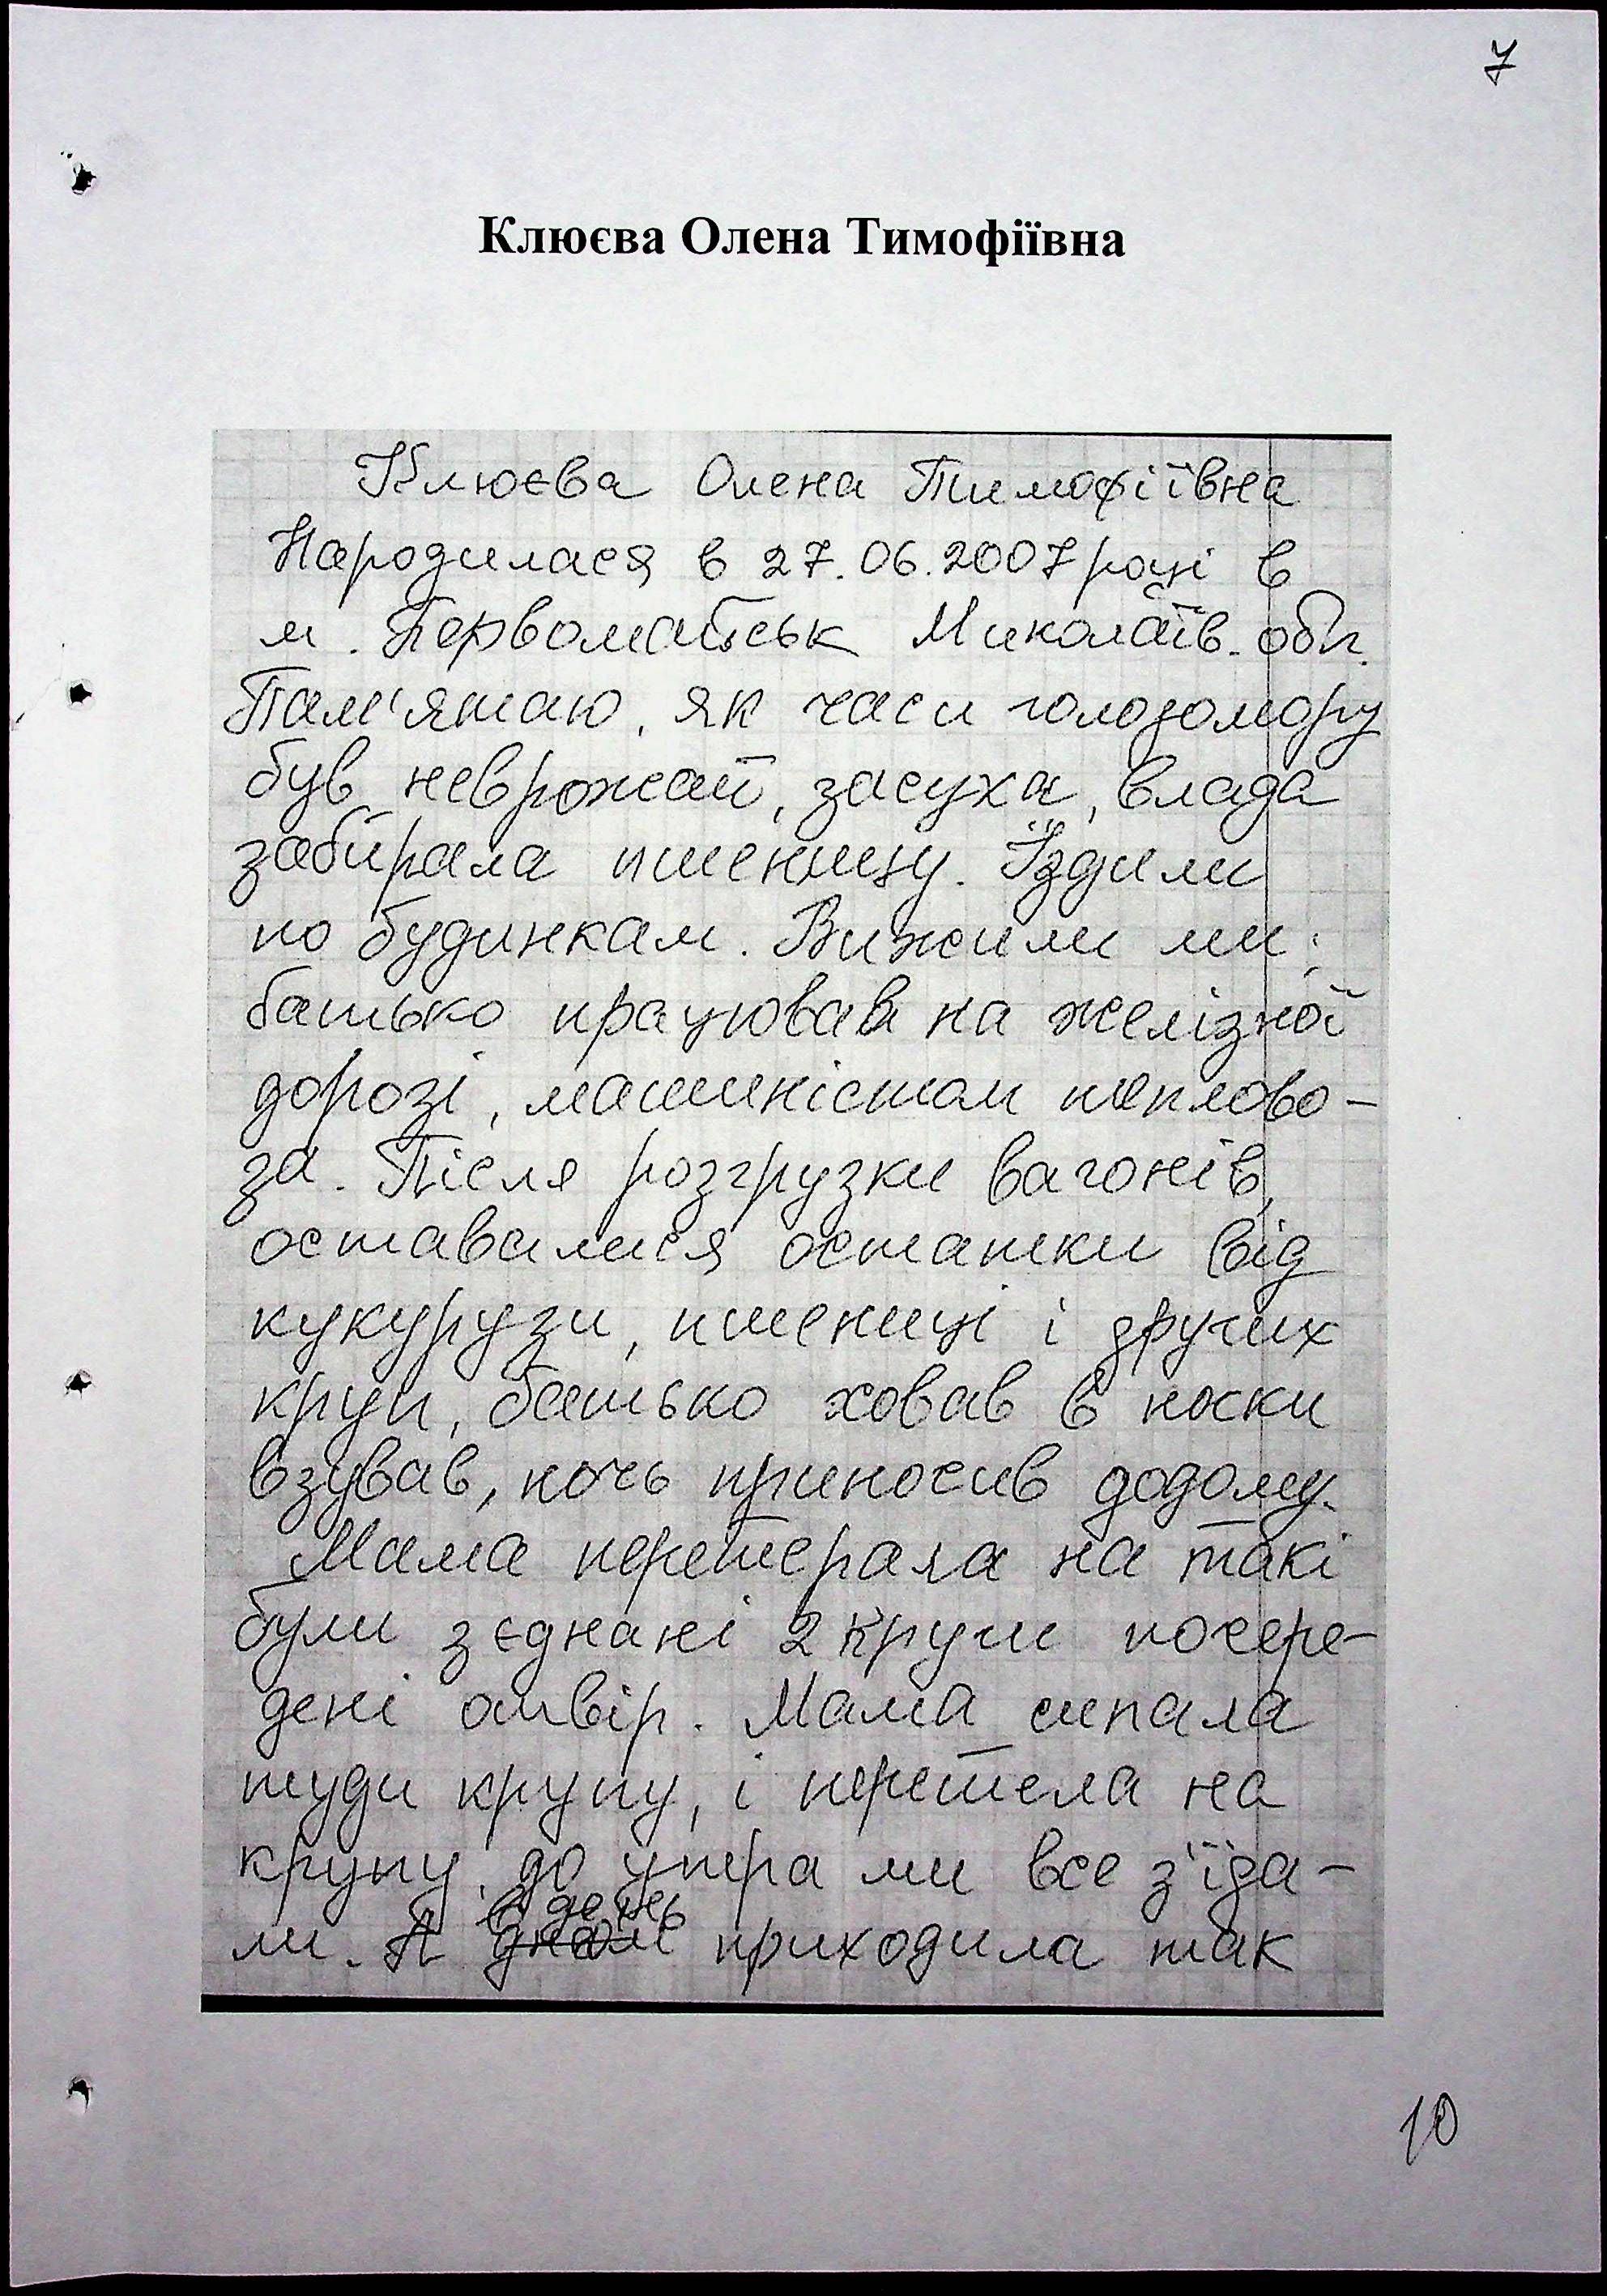 7
Клюєва Олена Тимофіївна
Клюєва Олена Тимофіївна
Народилася в 27.06.2007 році в
м. Первомайськ Миколаїв. обл.
Пам'ятаю, як часи голодомору
був неврожай, засуха, влада
забирала пшеницу. Їздили
по будинкам. Вижили ми;
батько працював на желізної
дорозі, машиністом теплово-
за. Після розгрузки вагонів,
оставалися остатки від
кукурузи, пшениці і других
круп, батько ховав в носки
взував, ночь приносив додому.
Мама перетерала на такі
були зєднані 2 круги посере-
дені отвір. Мама сипала
туди крупу, і перетела на
крупу, до утра ми все з'їда-
ли. А в день приходила так
10